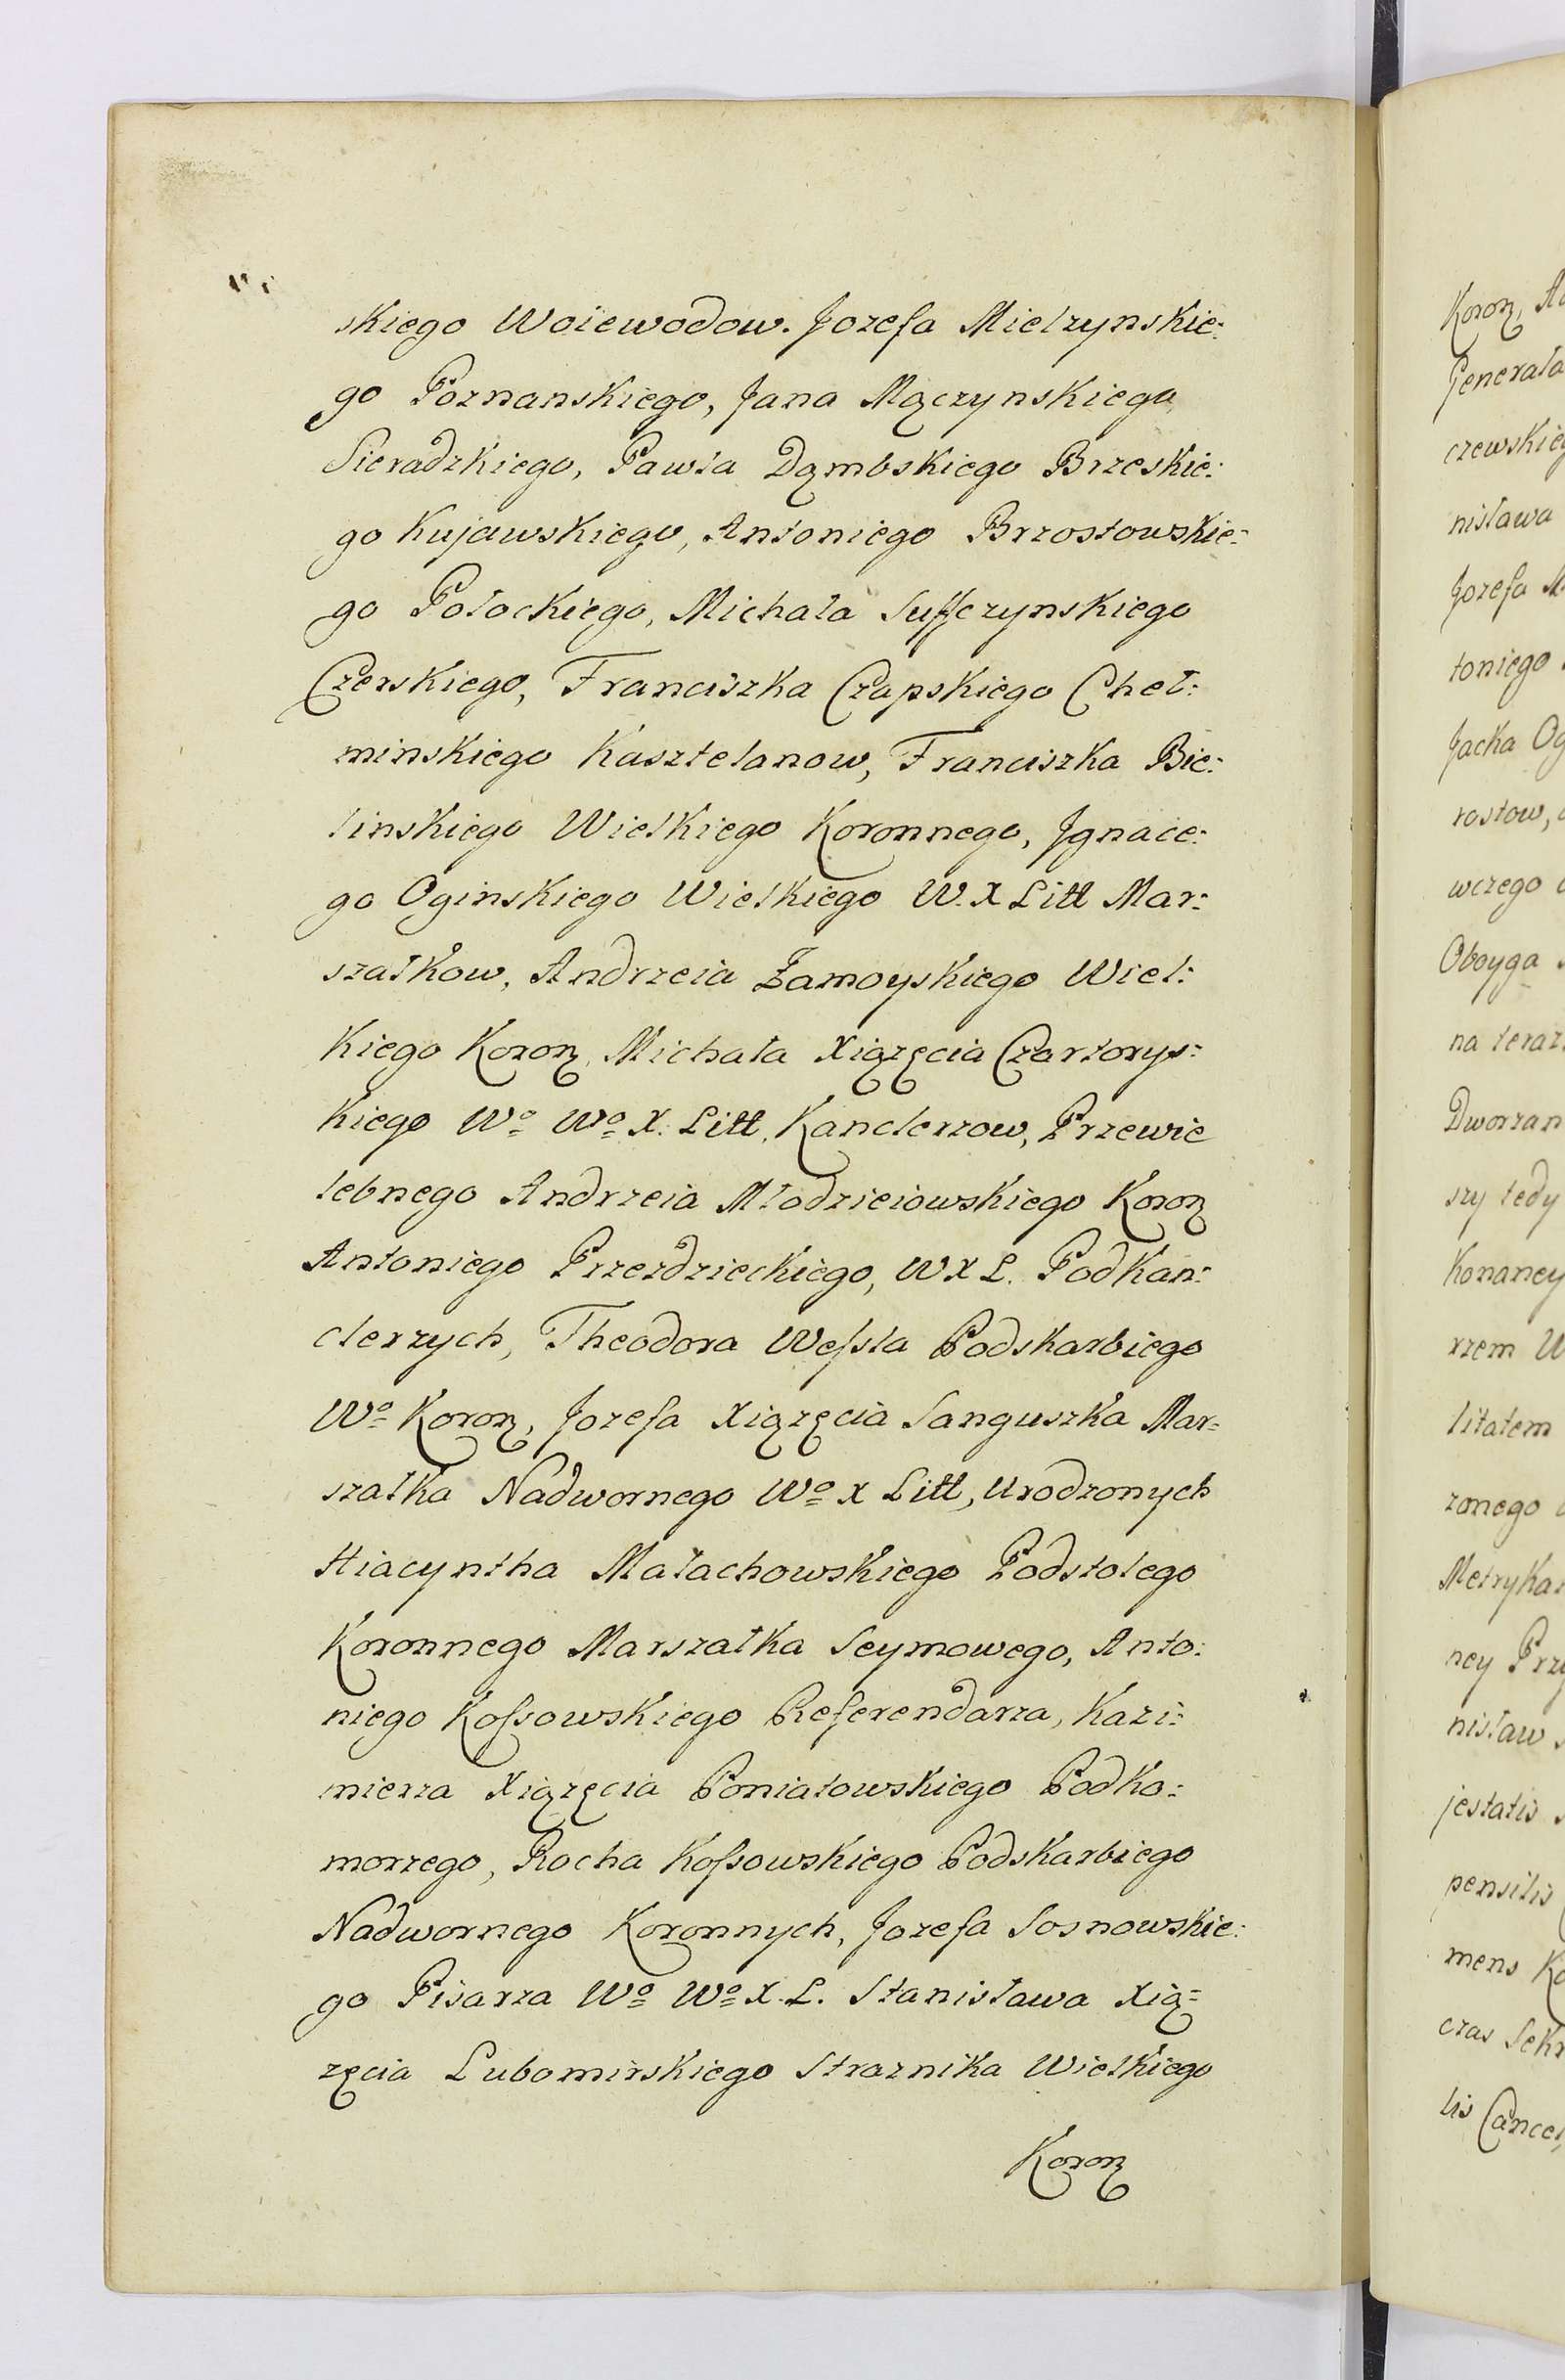 skiego Woiewodow. Jozefa Mielzynskie:
go Poznanskiego, Jana Mączynskiego
Sieradzkiego, Pawła Dąmbskiego Brzeskie:
go Kujawskiego, Antoniego Brzostowskie:
go Połockiego, Michała Suffczynskiego
Czerskiego, Franciszka Czapskiego Cheł:
minskiego Kasztelanow, Franciszka Bie:
linskiego Wielkiego Koronnego, Jgnace:
go Oginskiego Wielkiego W. X Litt Mar:
szałkow, Andrzeia Zamoyskiego Wiel:
kiego Koron, Michała Xiązęcia Czartorys:
kiego Wo Wo X. Litt. Kanclerzow, Przewie
lebnego Andrzeia Młodzieiowskiego Koron
Antoniego Przezdzieckiego, W X L. Podkan:
clerzych, Theodora Wessla Podskarbiego
Wo Koron, Jozefa Xiązęcia Sanguszka Mar=
szałka Nadwornego Wo X Litt, Urodzonych
Hiacyntha Małachowskiego Podstolego
Koronnego Marszałka Seymowego, Anto:
niego Kossowskiego Referendarza, Kazi:
mierza Xiązęcia Poniatowskiego Podko:
morzego, Rocha Kossowskiego Podskarbiego
Nadwornego Koronnych, Jozefa Sosnowskie:
go Pisarza Wo Wo X. L. Stanisława Xią=
zęcia Lubomirskiego Straznika Wielkiego
Koron
Koron,
Generała
czewskieg
nisława
Jozefa M
toniego
Jacka Og
rostow,
wczego
Oboyga
na teraz
Dworzan
szy tedy
konaney
rzem W
litatem
zonego
Metrykan
ney Przy
nisław
jestatis
pensilis
mens Ko
czas Sekr
lis Cancel